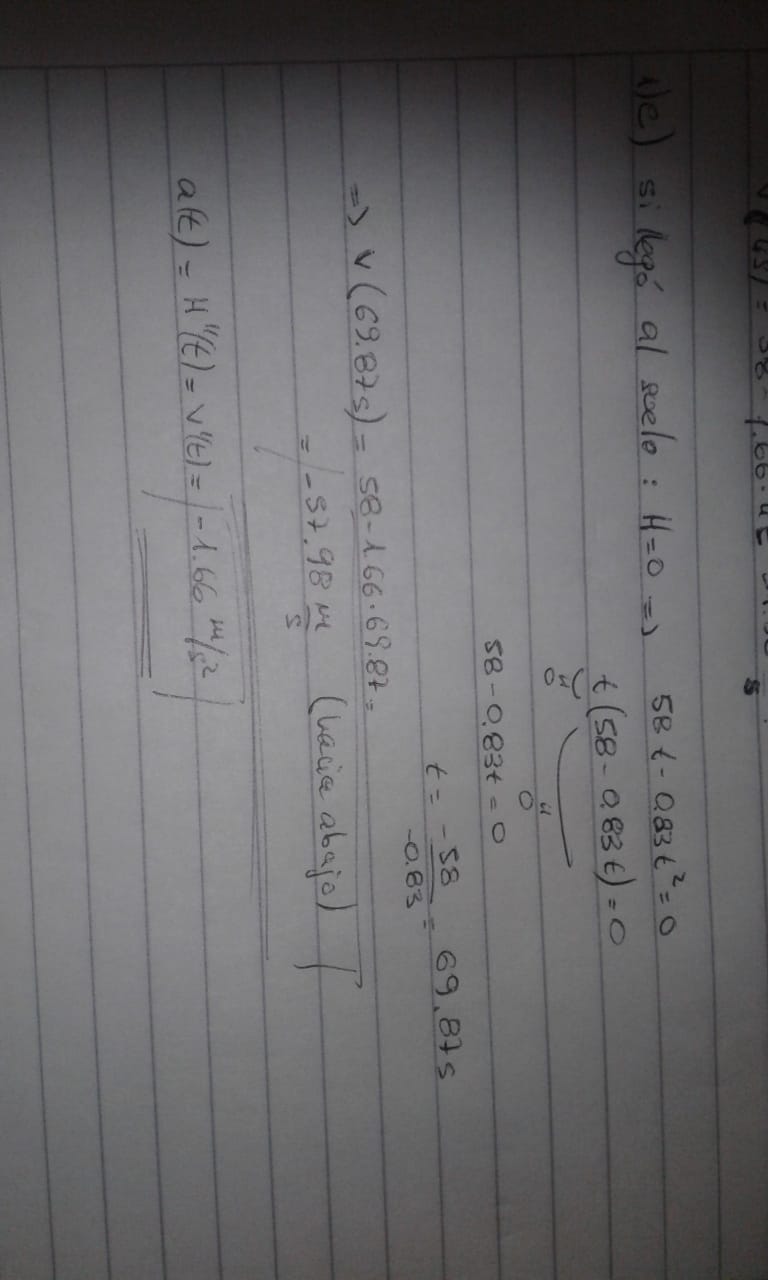 58 - 1.66 · 4 =
1)e) si llegó al suelo : H=0 => 58 t - 0.83 t² = 0
t (58 - 0.83 t) = 0
= 0 = 0
58 - 0.83t = 0
t = -58 / -0.83 = 69.87s
=> v (69.87s) = 58 - 1.66 · 69.87 =
= -57.98 m/s (hacia abajo)
a(t) = H''(t) = v'(t) = -1.66 m/s²